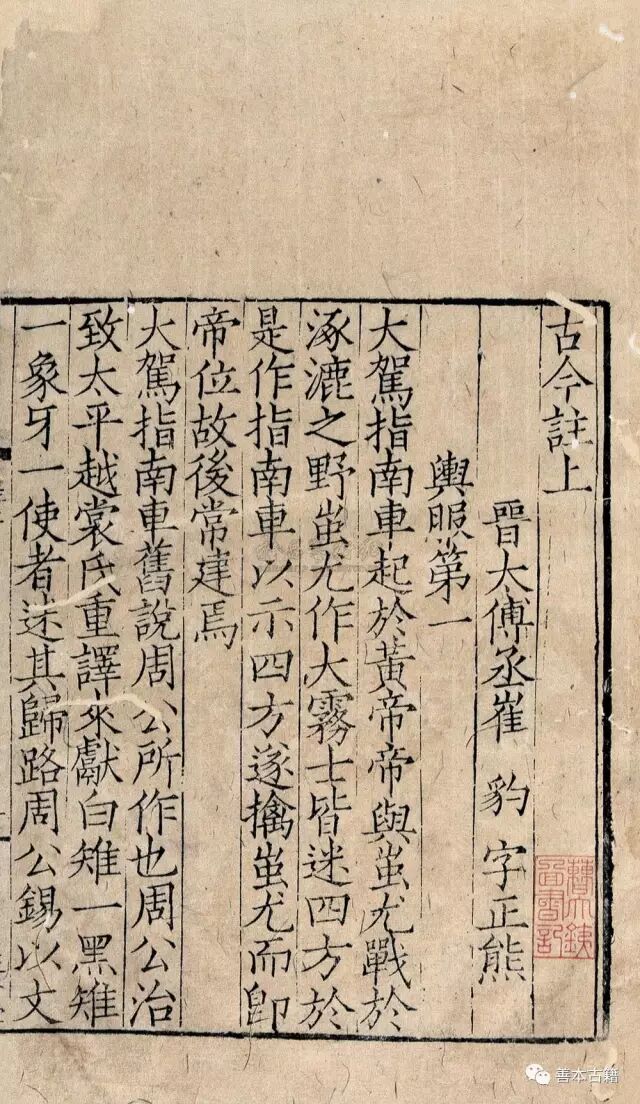 古今註上
晉大傅丞崔豹字正熊
輿服第一
大駕指南車起於黃帝帝與蚩尤戰於
涿漉之野蚩尤作大霧士皆迷四方於
是作指南車以示四方遂擒蚩尤而卽
帝位故後常建焉
大駕指南車舊說周公所作也周公治
致太平越裳氏重譯來獻白雉一黑雉
一象牙一使者迷其歸路周公錫以文
善本古籍